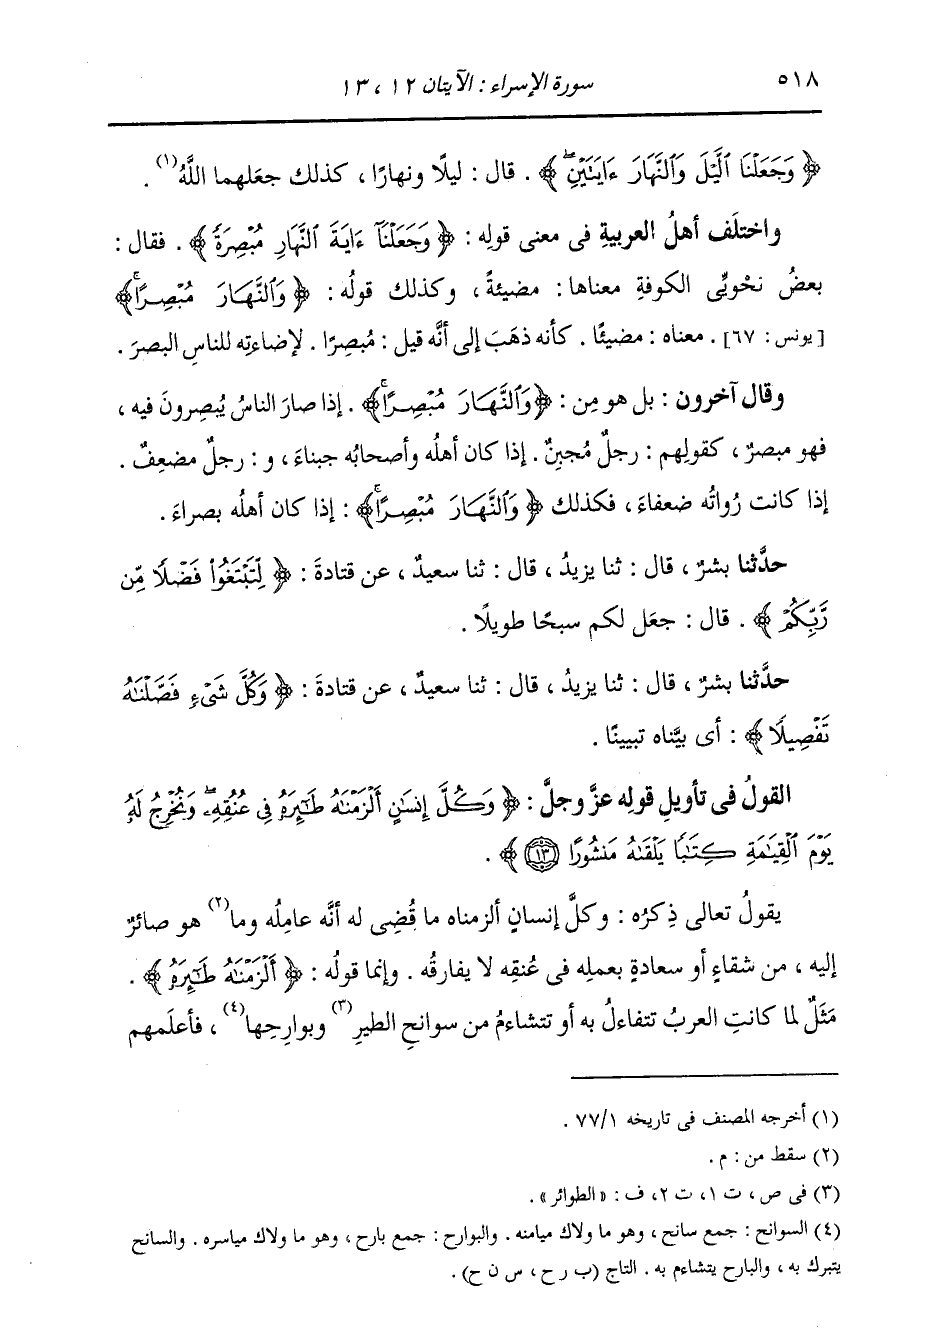 ٥١٨ سورة الإسراء : الآيتان ١٢ ، ١٣
﴿ وَجَعَلْنَا ٱلَّيْلَ وَٱلنَّهَارَ ءَايَتَيْنِۖ ﴾ . قال : ليلًا ونهارًا ، كذلك جعَلهما اللَّهُ(١) .
واختلَف أهلُ العربيةِ فى معنى قولِه : ﴿ وَجَعَلْنَآ ءَايَةَ ٱلنَّهَارِ مُبْصِرَةً ﴾ . فقال :
بعضُ نحْويِّى الكوفةِ معناها : مضيئةً ، وكذلك قولُه : ﴿ وَٱلنَّهَارَ مُبْصِرًاۚ ﴾
[يونس : ٦٧] . معناه : مضيئًا . كأنه ذهَب إلى أنَّه قيل : مُبصِرًا . لإضاءتِه للناسِ البصرَ .
وقال آخرون : بل هو مِن : ﴿ وَٱلنَّهَارَ مُبْصِرًاۚ ﴾ . إذا صارَ الناسُ يُبصِرونَ فيه ،
فهو مبصرٌ ، كقولِهم : رجلٌ مُجبِنٌ . إذا كان أهلُه وأصحابُه جبناءَ ، و : رجلٌ مضعِفٌ .
إذا كانت رُواتُه ضعفاءَ ، فكذلك ﴿ وَٱلنَّهَارَ مُبْصِرًاۚ ﴾ : إذا كان أهلُه بصراءَ .
حدَّثنا بشرٌ ، قال : ثنا يزيدُ ، قال : ثنا سعيدٌ ، عن قتادةَ : ﴿ لِّتَبْتَغُوا۟ فَضْلًا مِّن
رَّبِّكُمْ ﴾ . قال : جعَل لكم سبحًا طويلًا .
حدَّثنا بشرٌ ، قال : ثنا يزيدُ ، قال : ثنا سعيدٌ ، عن قتادةَ : ﴿ وَكُلَّ شَىْءٍ فَصَّلْنَٰهُ
تَفْصِيلًا ﴾ : أى بيَّناه تبيينًا .
القولُ فى تأويلِ قولِه عزَّ وجلَّ : ﴿ وَكُلَّ إِنسَٰنٍ أَلْزَمْنَٰهُ طَٰٓئِرَهُۥ فِى عُنُقِهِۦۖ وَنُخْرِجُ لَهُۥ
يَوْمَ ٱلْقِيَٰمَةِ كِتَٰبًا يَلْقَىٰهُ مَنشُورًا ١٣ ﴾ .
يقولُ تعالى ذِكرُه : وكلَّ إنسانٍ ألزمناه ما قُضِى له أنَّه عامِلُه وما(٢) هو صائرٌ
إليه ، من شقاءٍ أو سعادةٍ بعملِه فى عُنقِه لا يفارقُه . وإنما قولُه : ﴿ أَلْزَمْنَٰهُ طَٰٓئِرَهُۥ ﴾ .
مَثَلٌ لما كانتِ العربُ تتفاءلُ به أو تتشاءمُ من سوانحِ الطيرِ(٣) وبوارِحِها(٤) ، فأعلَمهم
(١) أخرجه المصنف فى تاريخه ٧٧/١ .
(٢) سقط من : م .
(٣) فى ص ، ت ١ ، ت ٢ ، ف : « الطوائر » .
(٤) السوانح : جمع سانح ، وهو ما ولاك ميامنه . والبوارح : جمع بارح ، وهو ما ولاك مياسره . والسانح
يتبرك به ، والبارح يتشاءم به . التاج (ب ر ح ، س ن ح) .